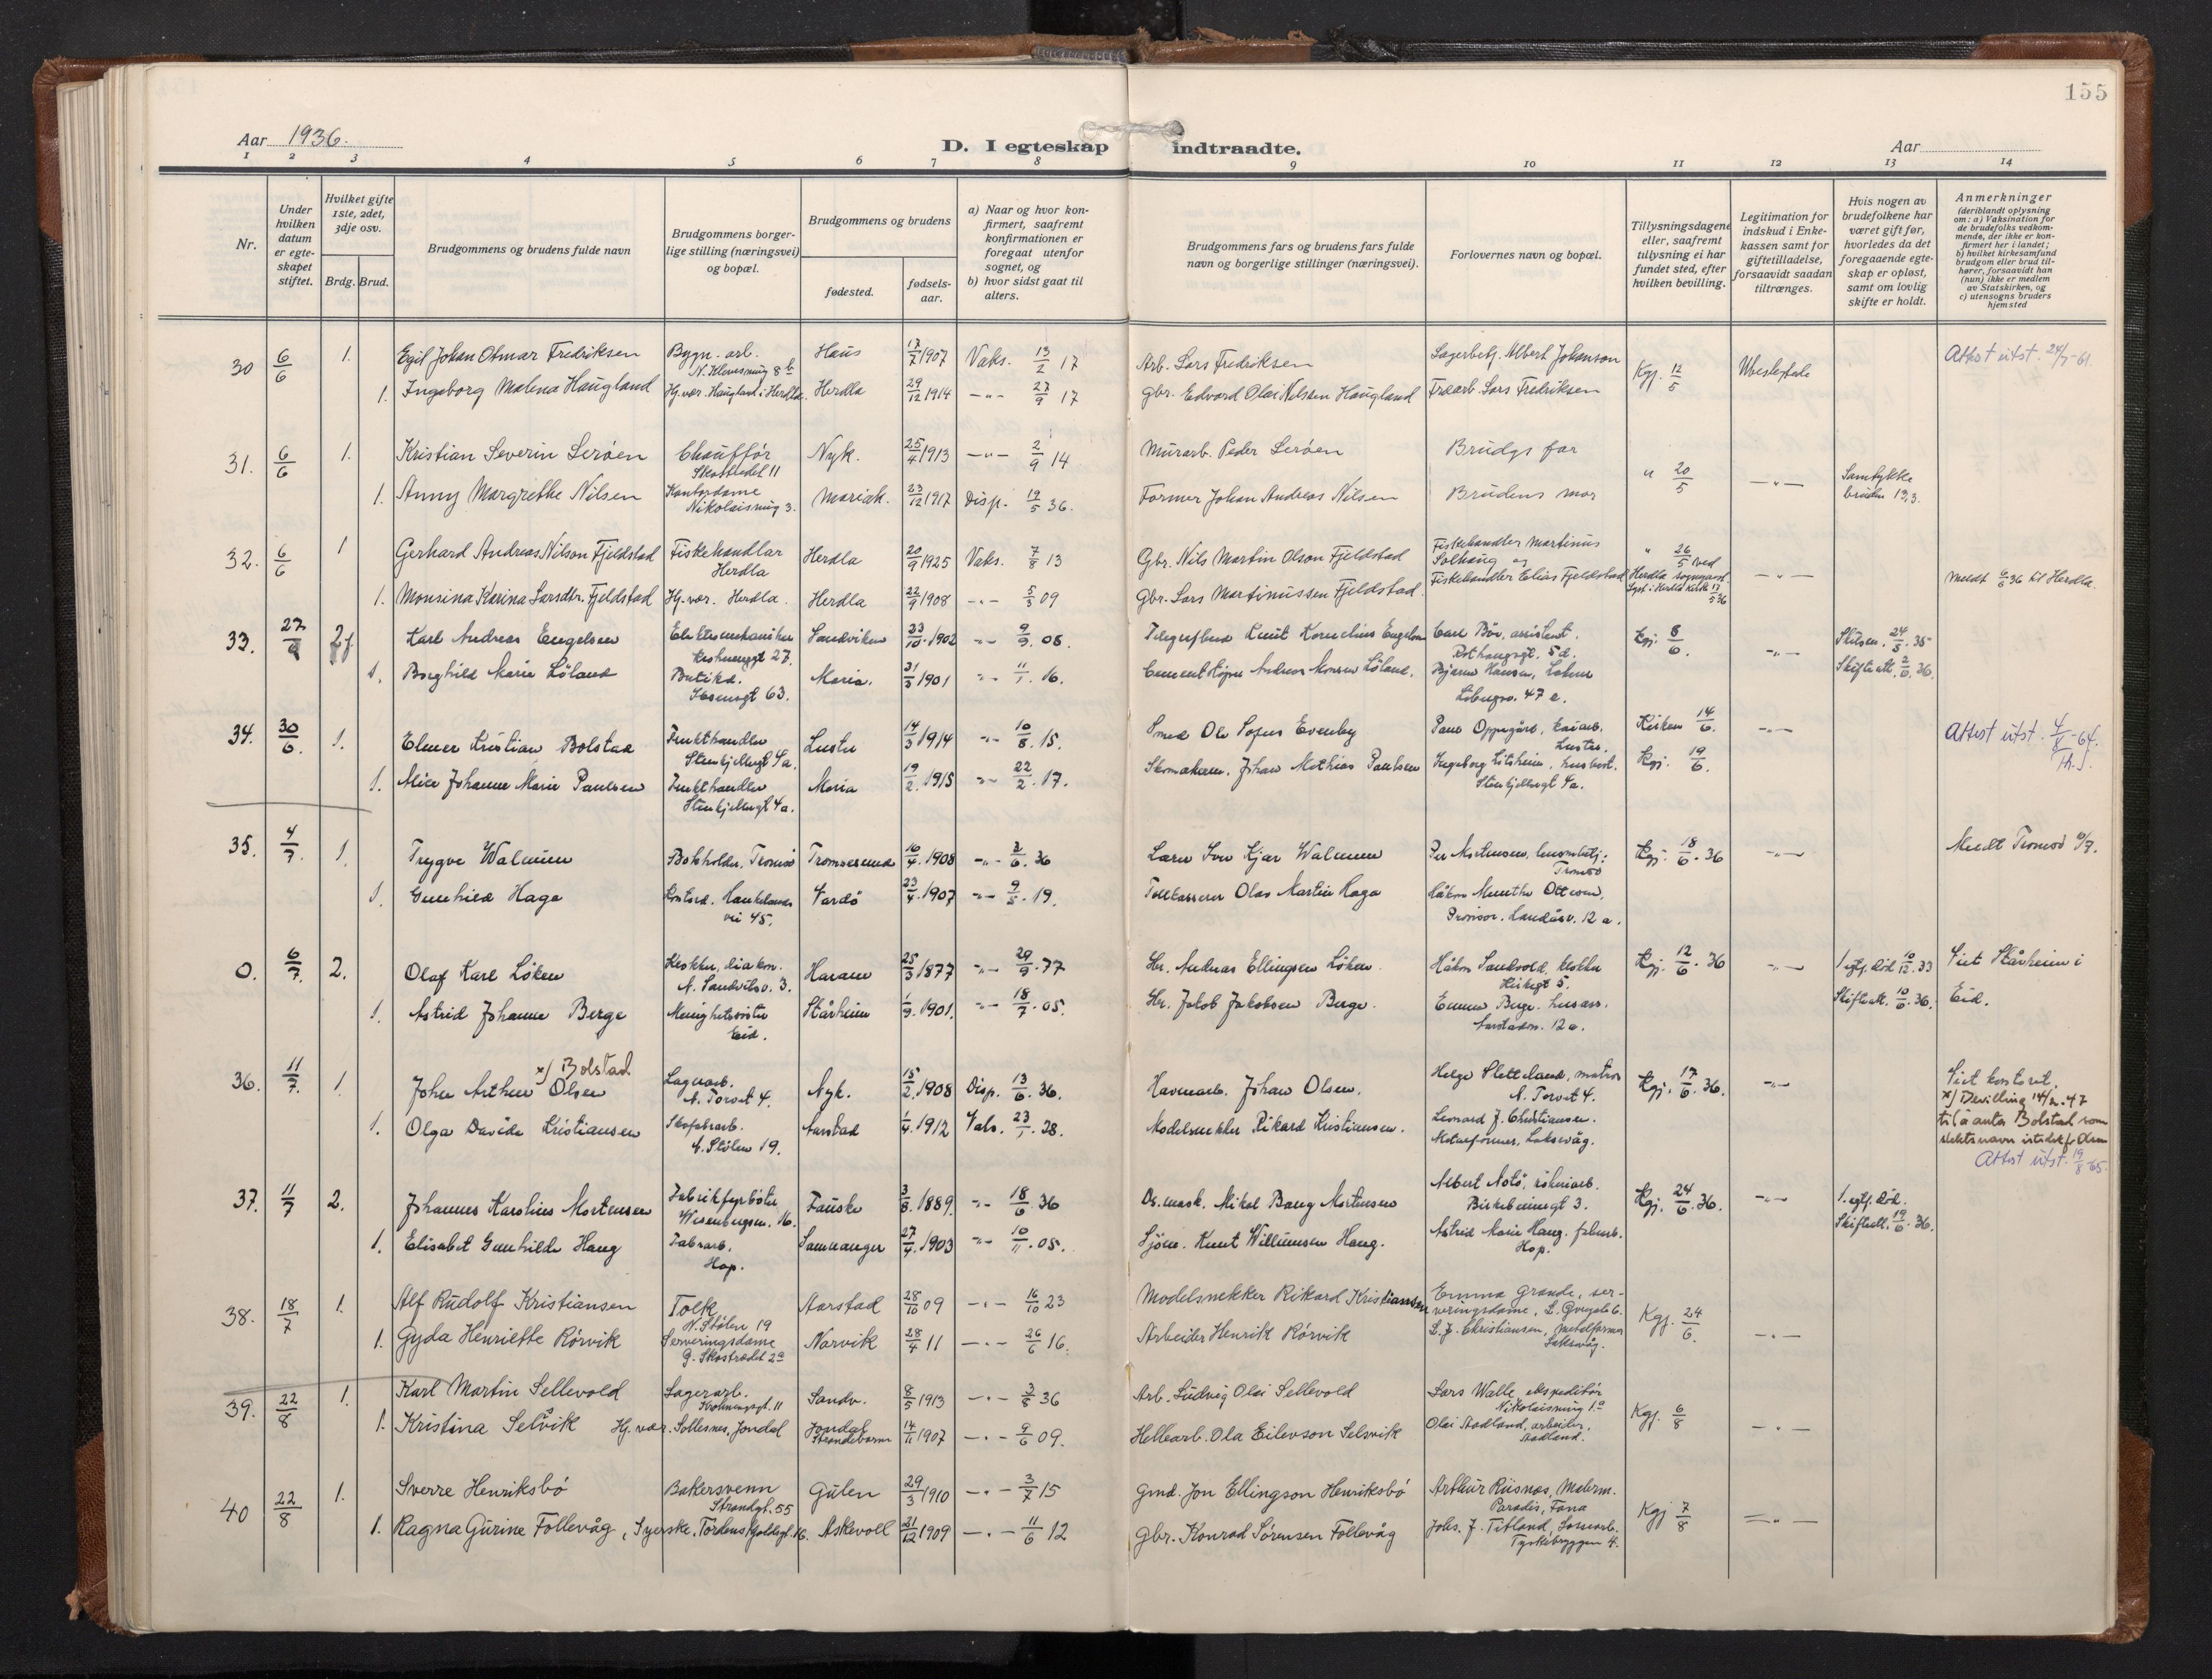 155
Aar 1936.
D. I egteskap indtraadte.
Aar
1 2 3 4 5 6 7 8 9 10 11 12 13 14
Nr.
Under hvilken datum er egteskapet stiftet.
Hvilket gifte 1ste, 2det, 3dje osv.
Brdg. Brud.
Brudgommens og brudens fulde navn
Brudgommens borgerlige stilling (næringsvei) og bopæl.
Brudgommens og brudens
fødested.
fødselsaar.
a) Naar og hvor konfirmert, saafremt konfirmationen er foregaat utenfor sognet, og
b) hvor sidst gaat til alters.
Brudgommens fars og brudens fars fulde navn og borgerlige stillinger (næringsvei).
Forlovernes navn og bopæl.
Tillysningsdagene eller, saafremt tillysning ei har fundet sted, efter hvilken bevilling.
Legitimation for indskud i Enkekassen samt for giftetilladelse, forsaavidt saadan tiltrænges.
Hvis nogen av brudefolkene har været gift før, hvorledes da det foregaaende egteskap er opløst, samt om lovlig skifte er holdt.
Anmerkninger
(deriblandt oplysning om: a) Vaksination for de brudefolks vedkommende, der ikke er konfirmert her i landet; b) hvilket kirkesamfund brudgom eller brud tilhører, forsaavidt han (hun) ikke er medlem av Statskirken, og c) utensogns bruders hjemsted
30 6/6 1. Egil Johan Otmar Fredriksen Bygn. arb. Haus 17/7 1907 Vaks. 13/2 17 Arb. Lars Fredriksen Lagerbetj. Albert Johanson Kgj. 12/5 Ubeslektede Attest utst. 24/7-61.
1. Ingeborg Malena Haugland Hj.vær. Haugland i Herdla. Herdla 29/12 1914 -"- 27/9 17 Gbr. Edvard Olai Nilsen Haugland Lars Fredriksen
31. 6/6 1. Kristian Severin Lerøen Chauffør Nyk. 25/4 1913 -"- 2/9 14 Murarb. Peder Lerøen Brudgs far " 20/5 -"- Samtykke
Skostredet 11
1. Anny Margrethe Nilsen Kontordame Mariak. 23/12 1917 Disp. 19/5 36. Former Johan Andreas Nilsen Brudens mor
Nikolaismug 3.
32. 6/6 1 Gerhard Andreas Nilson Fjeldstad Fiskehandlar Herdla 20/9 1925 Vaks. 7/8 13 Gbr. Nils Martin Olson Fjeldstad Fiskehandler Martinus Solhaug og " 26/5 ved -"-
Herdla
1. Monsina Karina Larsdtr. Fjeldstad Hj.vær. Herdla. Herdla 22/9 1908 -"- 5/3 09 Gbr. Lars Martinussen Fjeldstad. Fiskehandler Elias Fjeldstad Meldt 6/6 36 til Herdla.
33. 27/6 2 Karl Andreas Engelsen Elektromekaniker Sandviken 23/10 1902 -"- 9/9. 08. Knut Kornelius Engelsen Carl Bøe, assistent. Kgj. 8/6. -"- Skilsm. 24/5. 35
1. Borghild Marie Løland Butikd. Maria. 31/3 1901 -"- 11/1. 16. Andreas Monsen Løland. Bjarne Hansen, Skifteatt. 2/6. 36.
34. 30/6. 1. Elmer Kristian Bolstad Frukthandler Luster 14/3 1914 -"- 10/8. 15. Smed Ole Sofus Evenby Kirken 14/6. -"- Attest utst. 4/8-64.
Stenkjellergt 4a. Luster. Th. J.
1. Alice Johanne Marie Paulsen Frukthandler Maria 19/2. 1915 -"- 22/2. 17. Skomakerm. Johan Mathias Paulsen Kgj. 19/6.
Stenkjellergt 4a. Stenkjellergt 4a.
35. 4/7. 1. Trygve Walnum Bokholder, Tromsø Tromsøsund 16/4. 1908 -"- 2/6. 36 Iver Kjær Walnum Per Mortensen, Kgj. 18/6. 36 -"- Meldt Tromsø
Tromsø
1. Gunhild Haga Kontord. Haukelands vei 45. Vardø 23/4. 1907 -"- 9/5. 19. Tollkasserer Olaf Martin Haga Håkon Munthe Ottesen,
Provisor. Landåsv. 12 a.
0. 6/7. 2. Olaf Karl Løken Klokker, diakon. Haram 25/3 1877 -"- 29/9. 77 Gbr. Andreas Ellingsen Løken. Håkon Sandvold, klokker Kgj. 12/6. 36 -"- 1 egtf. död 10/12. 33 Viet Stårheim i
N. Sandviksv. 3. Kirkegt 5. Skifteatt. 10/6. 36. Eid.
1. Astrid Johanne Berge Menighetssøster Stårheim 1/9. 1901. -"- 18/7. 05. Gbr. Jakob Jakobsen Berge. Emma Berge, husass.
Eid. Aarstadvn. 12a.
36. 11/7. 1. x) Bolstad
John Arthur Olsen Lagerarb. Nyk. 15/2. 1908 Disp. 13/6. 36. Havnearb. Johan Olsen. Helge Sletteland, matros Kgj. 17/6. 36. -"- Viet kontoret.
N. Torvet 4. N. Torvet 4. x) Bevilling 14/2. 47
1. Olga Davida Kristiansen Skofabrarb. Aarstad 1/4. 1912 Vaks. 23/1. 28. Modelsnekker Rikard Kristiansen. Leonard J. Christiansen. til å anta Bolstad som
N. Stølen 19. Metalformer, Laksevåg. slektsnavn istedetf. Olsen
Attest utst. 19/8 65.
37. 11/7 2. Johannes Karolius Mortensen Fabrikfyrbøter Fauske 3/8. 1889. -"- 18/6. 36 Mikal Bang Mortensen Albert Kgj. 24/6. 36. -"- 1. egtf. död.
Wesenbergsm. 16. Birkebeinergt 3. Skifteatt. 19/6. 36.
1. Elisabet Gunhilda Haug Fabrarb. Samnanger 27/4. 1903 -"- 10/11. 05. Sjöm. Knut Willumsen Haug. Astrid Marie Haug. fabarb.
Hop. Hop.
38. 18/7 1. Alf Rudolf Kristiansen Tolk Aarstad 28/10 09 -"- 16/10 23 Modelsnekker Rikard Kristiansen Emma Grande, ser- Kgj. 24/6. -"-
N. Stølen 19 veringsdame,
1. Gyda Henriette Rörvik Serveringsdame Narvik 28/4 11 -"- 26/6 16. Arbeider Henrik Rörvik L. J. Christiansen, Metalformer
Ø. Skostredet 2a Laksevåg.
39. 22/8 1. Karl Martin Sellevold Lagerarb. Sandv. 8/5 1913 -"- 3/8 36 Arb. Ludvig Olai Sellevold Lars Walle, ekspeditör Kgj. 6/8 -"-
Nikolaismug 1a
1. Kristina Selsvik Hj. vær. Solesnes, Jondal Jondal 14/11 1907 -"- 9/6 09. Hellearb. Ola Eilevson Selsvik Olai Aadland, arbeider,
Strandebarm Aadland.
40 22/8 1. Sverre Henriksbö Bakersvenn Gulen 29/3 1910 -"- 3/7 15 Gmd. Jon Ellingson Henriksbö Arthur Risnes, Malerm. Kgj 7/8 -"-
Strandgt. 55 Paradis, Fana
1. Ragna Gurine Follevåg, Syerske, Tordenskjoldsgt. 16. Askevoll 21/12 1909 -"- 11/6 12 Gbr. Konrad Sørensen Follevåg Johs. J. Titland,
Tyskebryggen 4.